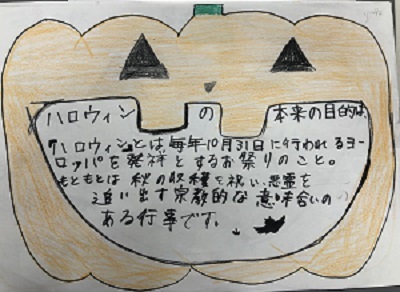 ハロウィン の 本来の目的は、
ハロウィンとは、毎年10月31日に行われるヨー
ロッパを発祥とするお祭りのこと。
もともとは秋の収穫を祝い、悪霊を
追い出す宗教的な意味合いの
ある行事です。